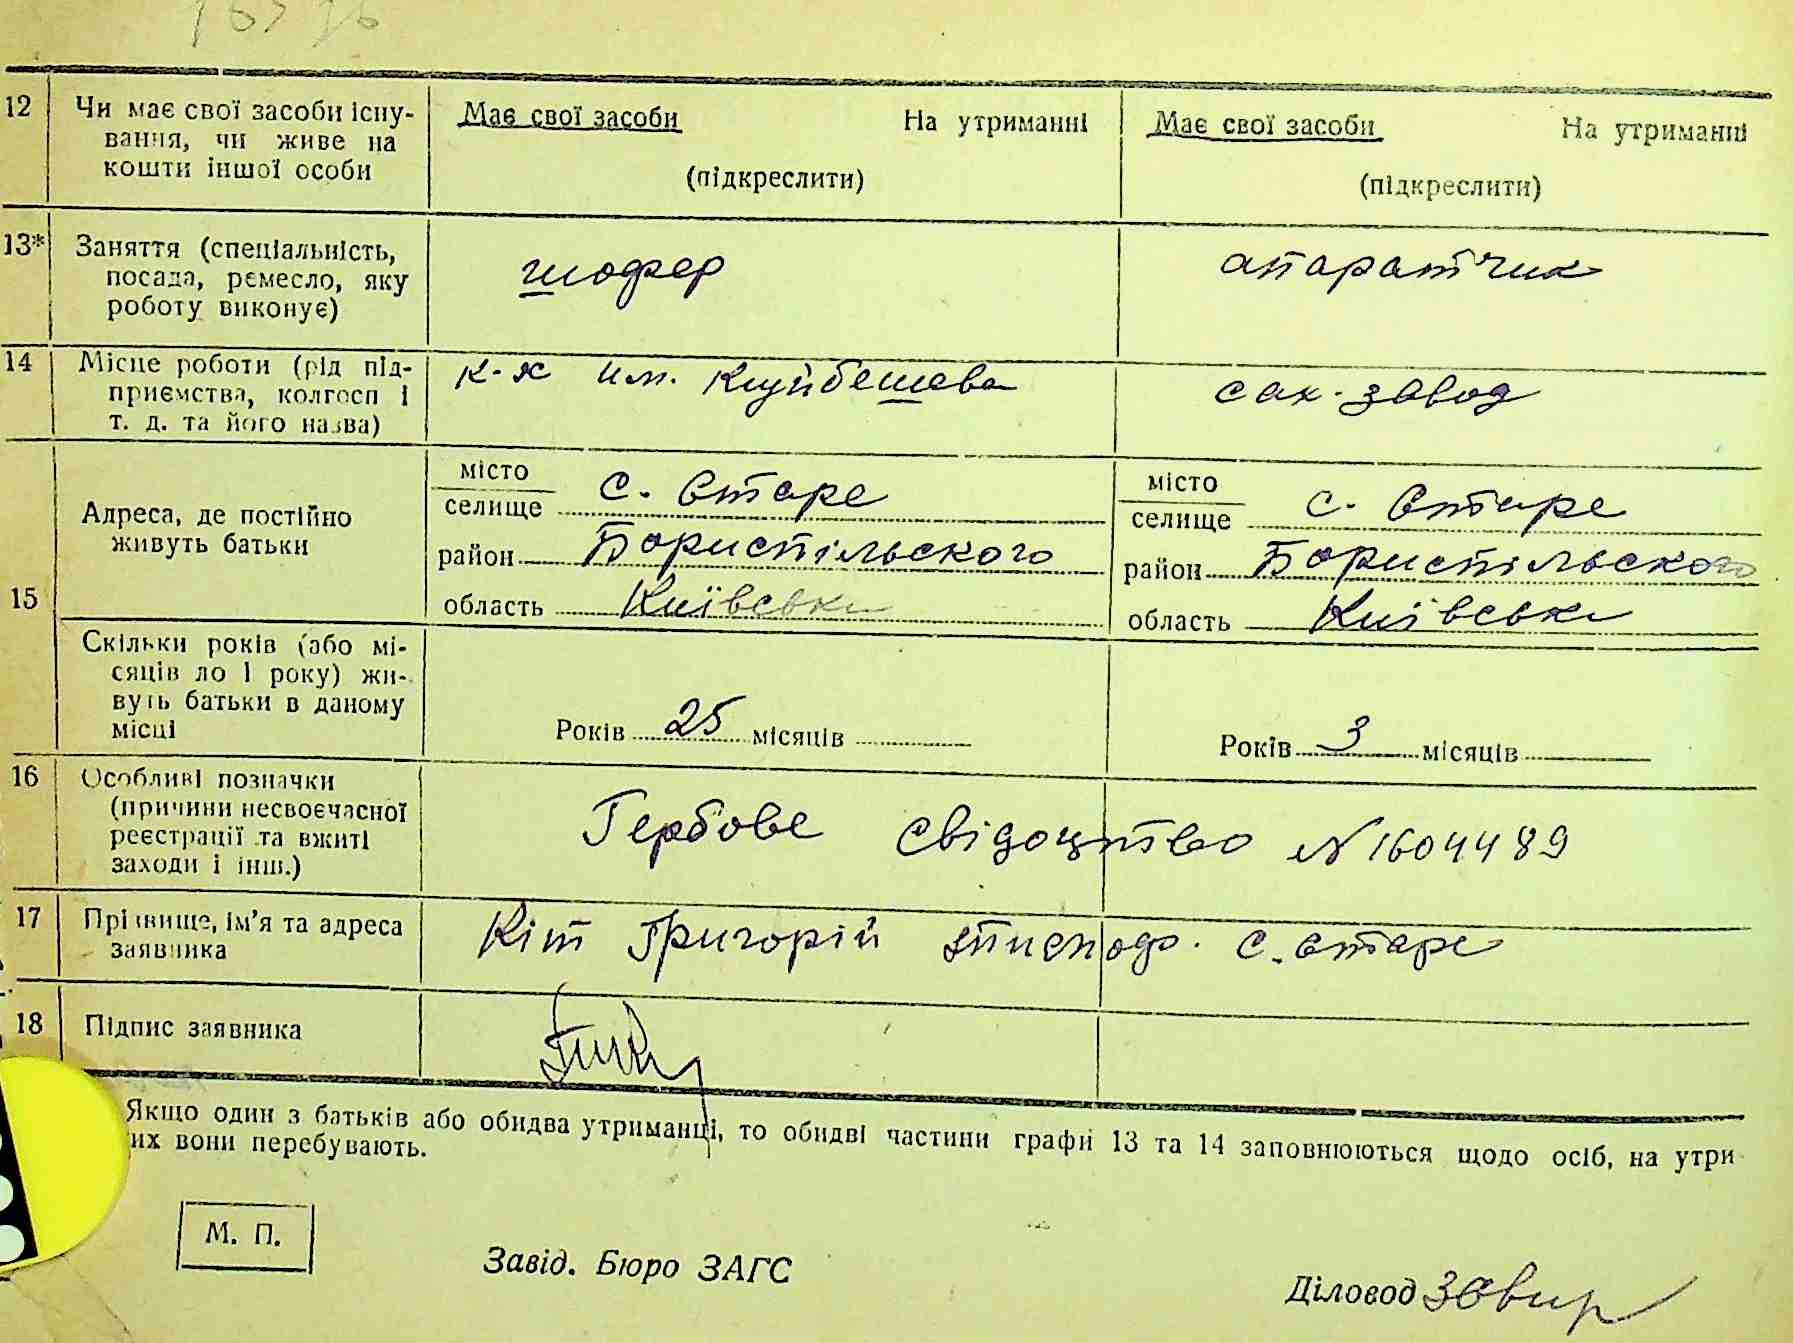 12 Чи має свої засоби існу- Має свої засоби На утриманні Має свої засоби На утриманні
вання, чи живе на
кошти іншої особи (підкреслити) (підкреслити)
13* Заняття (спеціальність, шофер апаратчик
посада, ремесло, яку
роботу виконує)
14 Місце роботи (рід під- к-х им. Куйбешева сах. завод
приємства, колгосп і
т. д. та його назва)
15 Адреса, де постійно
живуть батьки
місто
селище с. Старе
район Бориспільского
область Київська
місто
селище с. Старе
район Бориспільского
область Київська
Скільки років (або мі-
сяців до 1 року) жи-
вуть батьки в даному
місці
Років 25 місяців
Років 3 місяців
16 Особливі позначки
(причини несвоєчасної
реєстрації та вжиті
заходи і інш.)
Гербове свідоцтво № 1604489
17 Прізвище, ім'я та адреса
заявника
Кіт Григорій с. Старе
18 Підпис заявника
Якщо один з батьків або обидва утриманці, то обидві частини графи 13 та 14 заповнюються щодо осіб, на утри
их вони перебувають.
М. П.
Завід. Бюро ЗАГС
Діловод